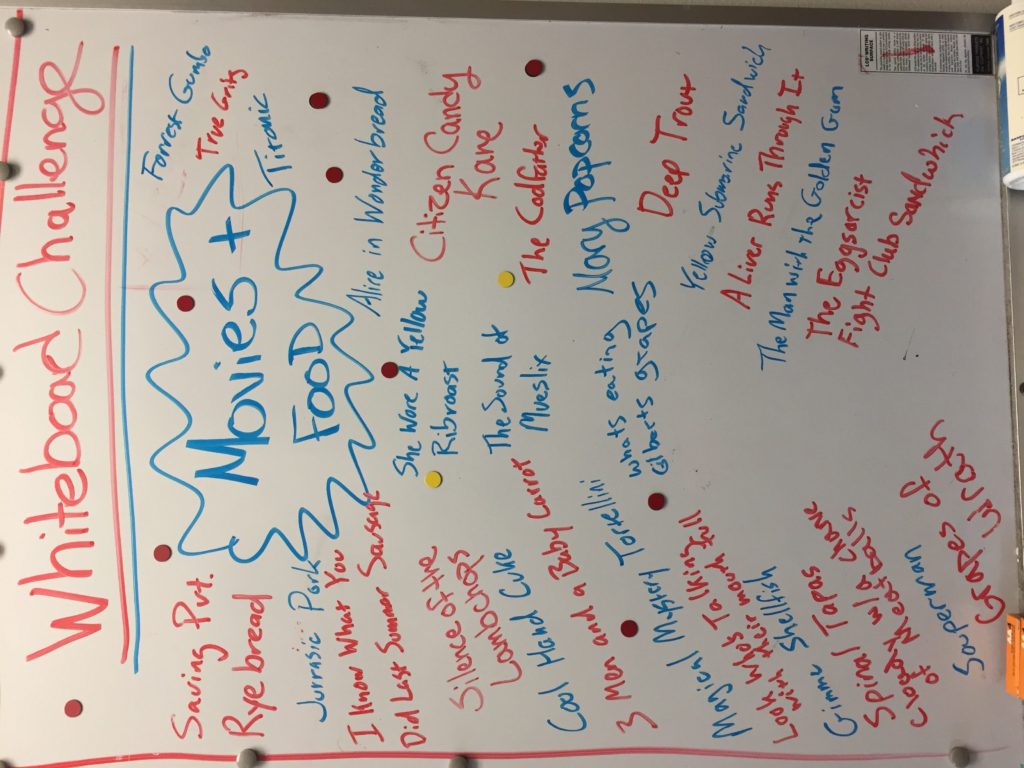 Whiteboard Challenge
Movies +
FOOD
Forrest Gumbo
True Grits
Titronic
Saving Pvt.
Ryebread
Jurrasic Pork
I Know What You
Did Last Summer Sausage
Silence of the
Lambchops
Cool Hand Cuke
3 Men and a Baby Carrot
Magical Mystery Tortellini
Look Who's Talking
with their mouth full
Gimme Shellfish
Spinal Tapas
w/ a
of Meatballs
Souperman
Grapes of
Wrath
Alice in Wonderbread
She Wore A Yellow
Ribroast
Citizen Candy
Kane
The Sound of
Mueslix
The Codfather
Mary Popcorns
whats eating
Gilbarts grapes
Deep Trout
Yellow Submarine Sandwich
A Liver Runs Through It
The Man with the Golden Gum
The Eggsorcist
Fight Club Sandwhich